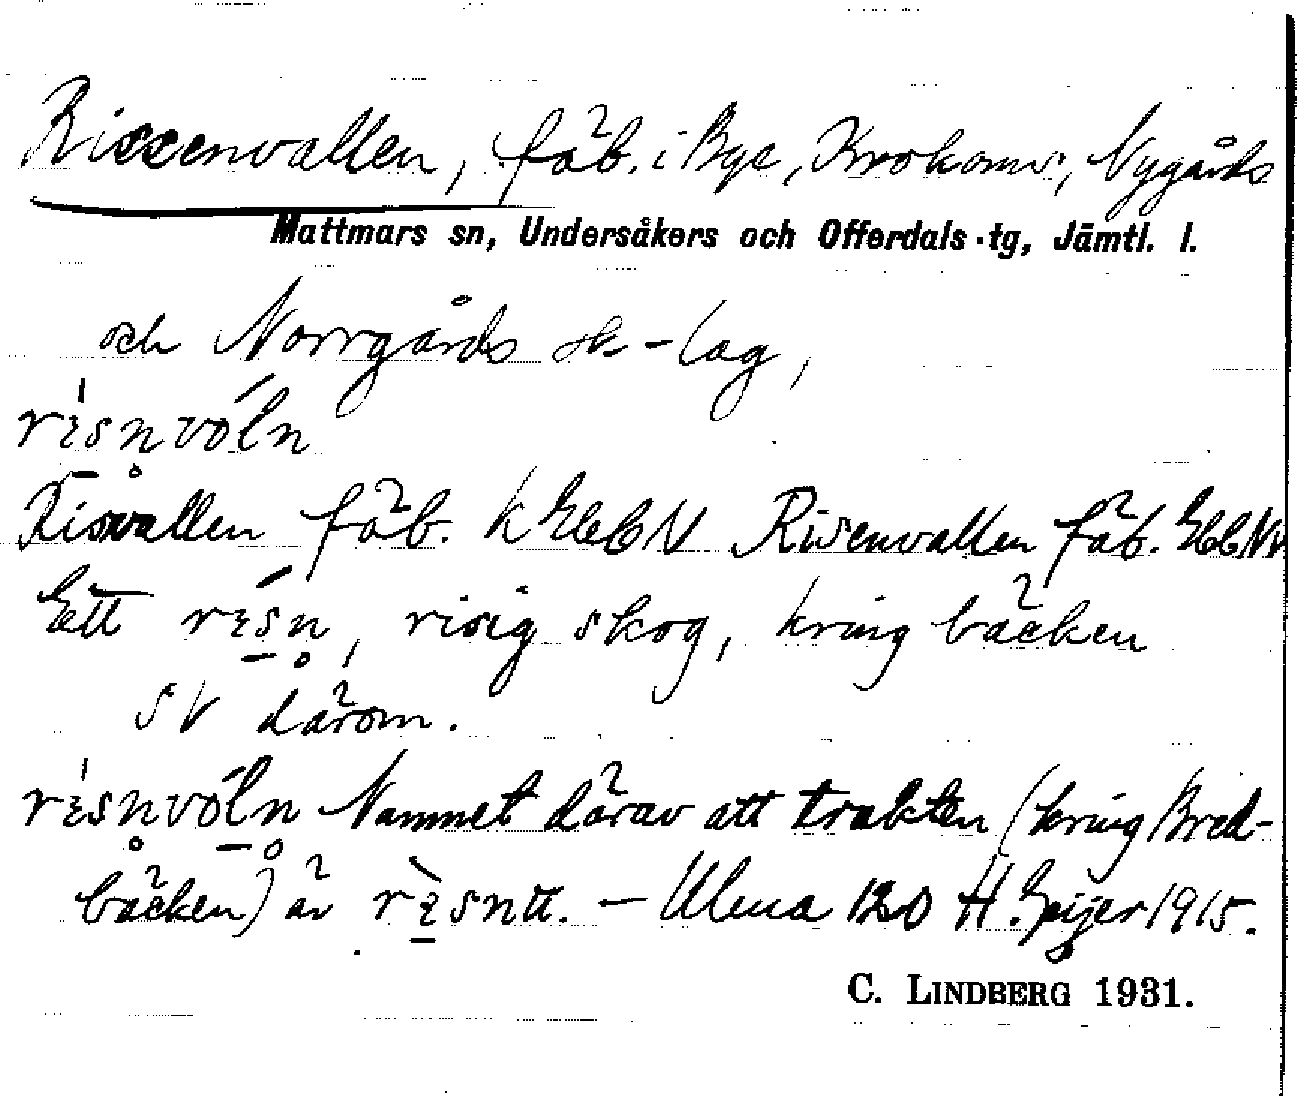 Rissenvallen, fäb. i Bye, Krokoms, Nygårds
Mattmars sn, Undersåkers och Offerdals tg, Jämtl. l.
och Norrgårds sk-lag,
rɩsn̥vóln
Risvallen fäb. k Risenvallen fäb.
Ett rɩsn̥, risig skog, kring bäcken
SV därom.
rɩsn̥vóln̥ Namnet därav att trakten (kring Bred-
bäcken) är rɩ̀sntt. – Ulma 120 H. Geijer 1915.
C. LINDBERG 1931.